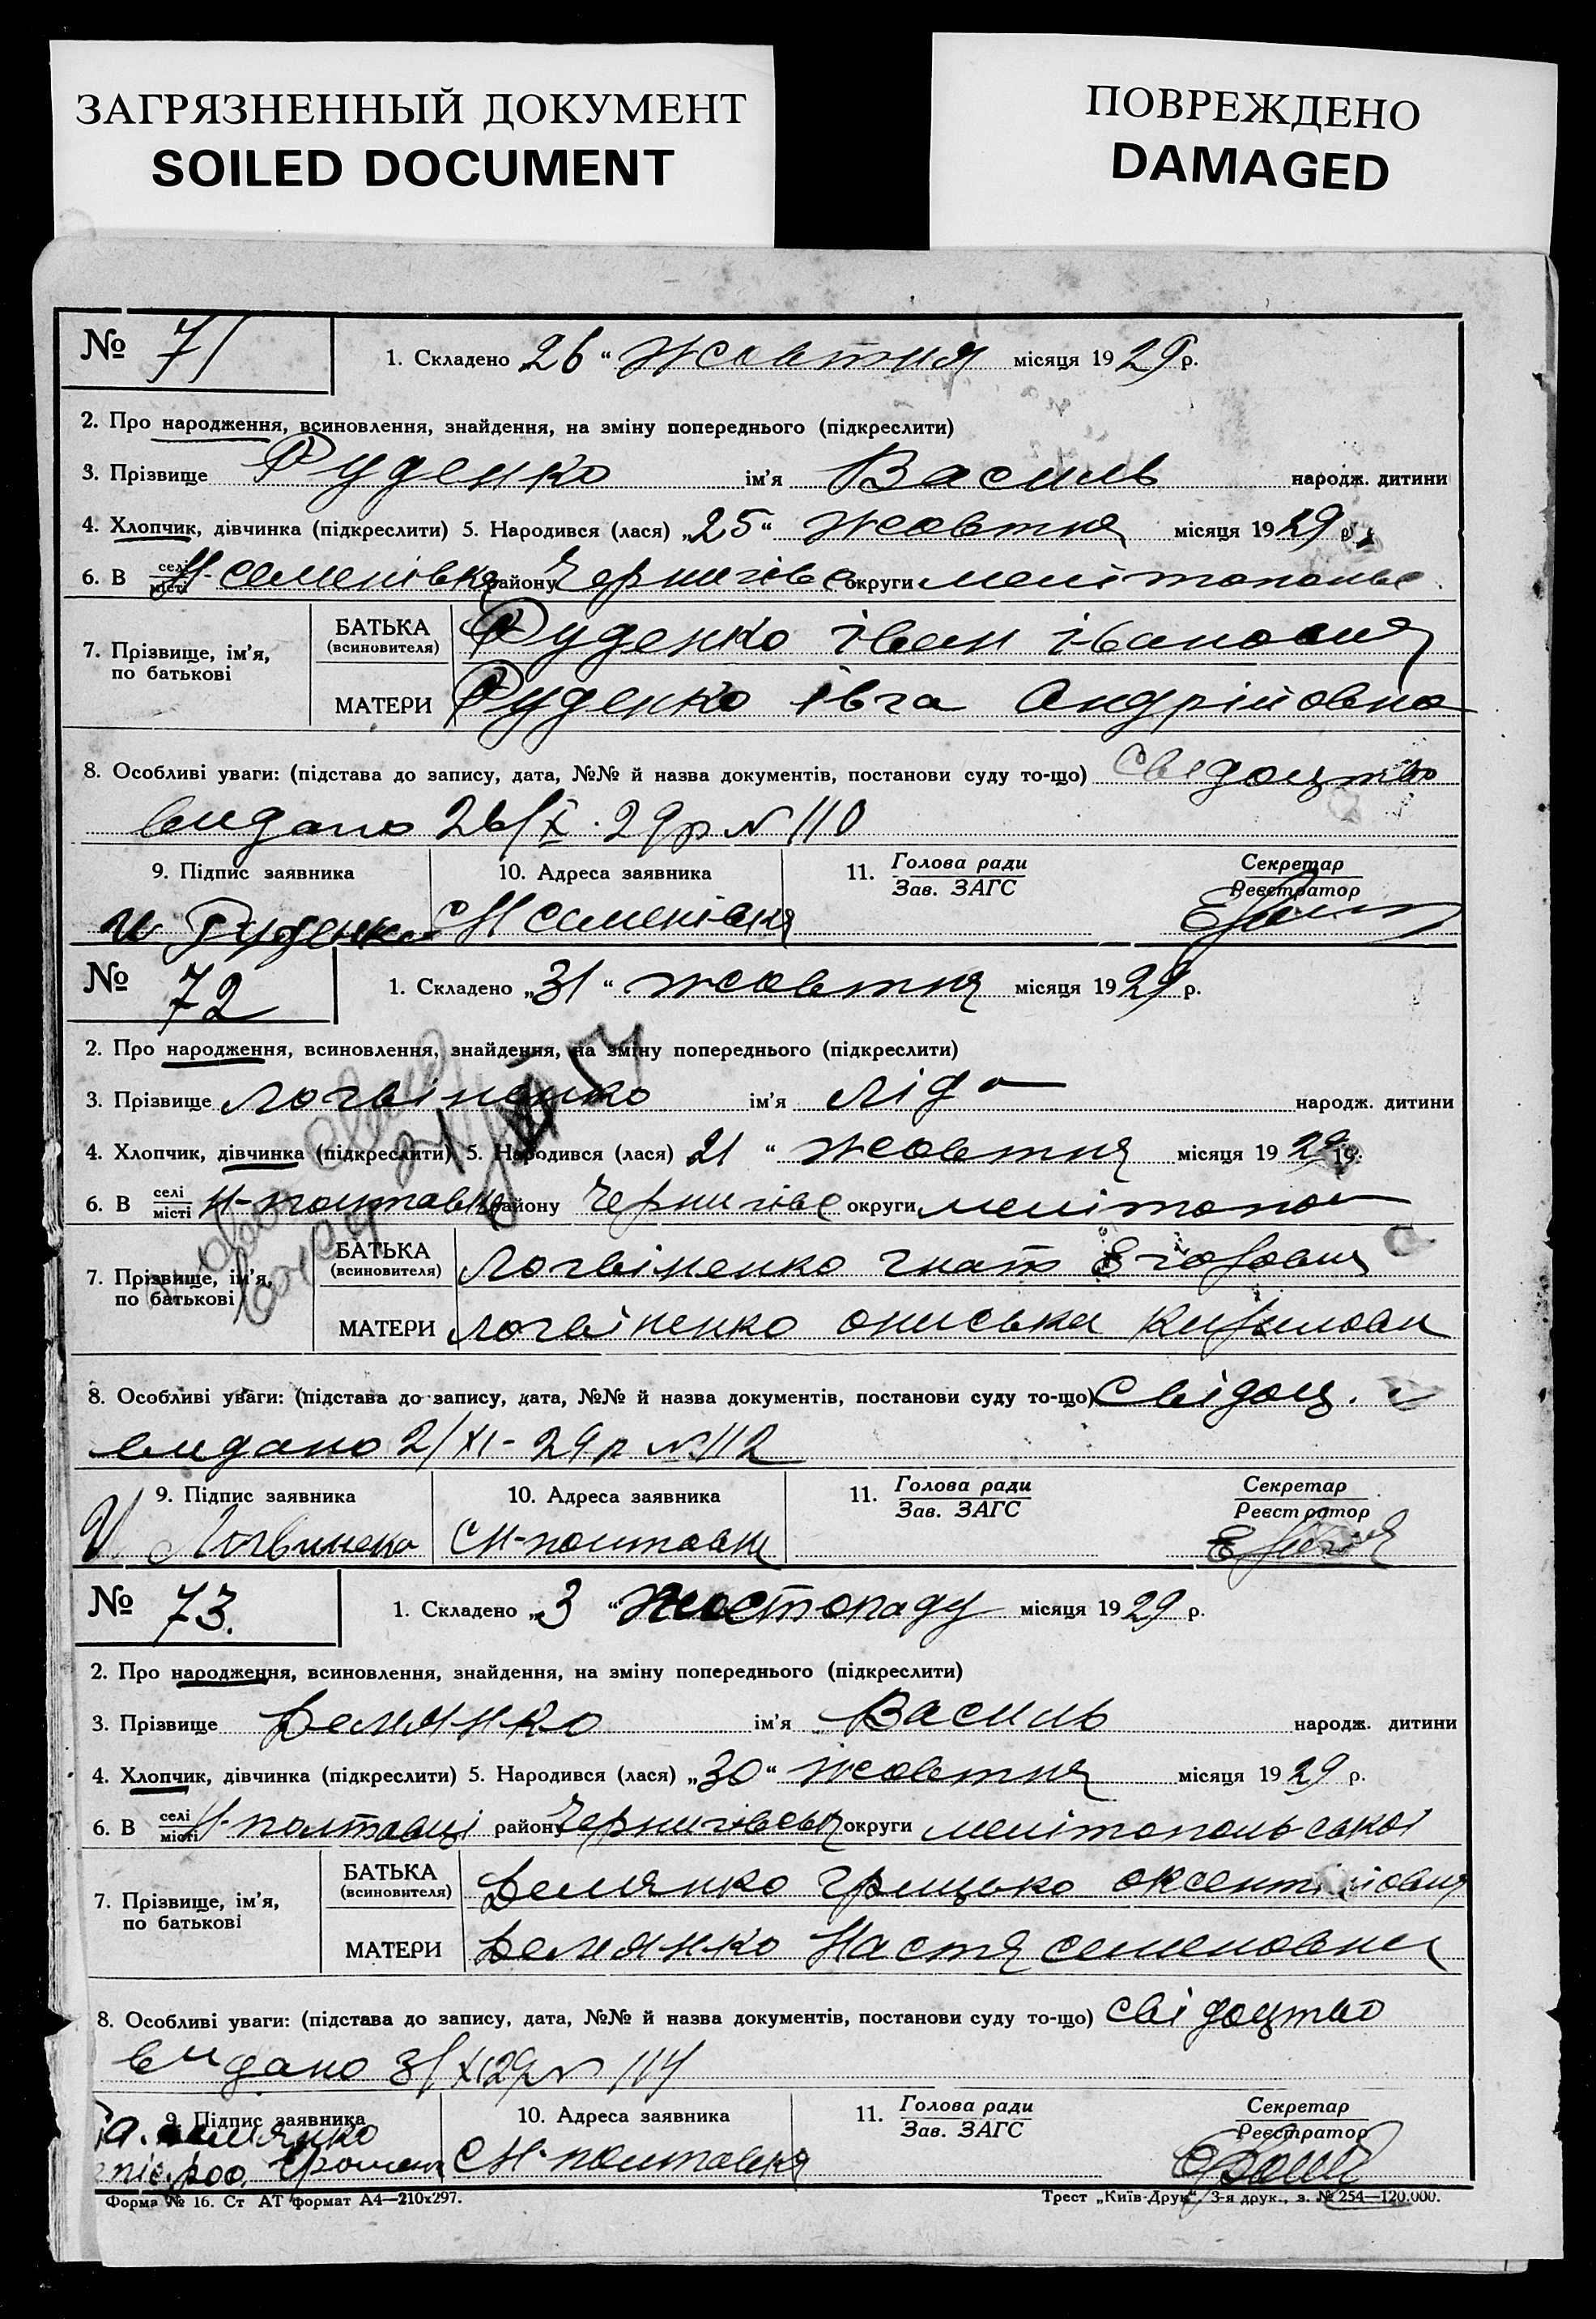 ЗАГРЯЗНЕННЫЙ ДОКУМЕНТ
SOILED DOCUMENT
ПОВРЕЖДЕНО
DAMAGED
№ 71
1. Складено 26 “ жовтня місяця 1929 р.
2. Про народження, всиновлення, знайдення, на зміну попереднього (підкреслити)
3. Прізвище Руденко ім’я Василь народж. дитини
4. Хлопчик, дівчинка (підкреслити) 5. Народився (лася) „25“ жовтня місяця 1929 р.
6. В селі місті Н-семенівка району Чернигівс округи мелітопольс.
7. Прізвище, ім’я, по батькові
БАТЬКА (всиновителя) Руденко іван іванович
МАТЕРИ Руденко івга Андрійовна
8. Особливі уваги: (підстава до запису, дата, №№ й назва документів, постанови суду то-що) Свідоцтво
видано 26/X.29р № 110
9. Підпис заявника 10. Адреса заявника 11. Голова ради Зав. ЗАГС Секретар Реєстратор
И Руденко с Н семенівка
№ 72
1. Складено „31“ жовтня місяця 1929 р.
2. Про народження, всиновлення, знайдення, на зміну попереднього (підкреслити)
3. Прізвище Логвіненко ім’я Ліда народж. дитини
4. Хлопчик, дівчинка (підкреслити) 5. Народився (лася) 21 “ жовтня місяця 1929 р.
6. В селі місті Н-полтавка району Чернигівс округи мелітопол
7. Прізвище, ім’я, по батькові
БАТЬКА (всиновителя) Логвіненко гнат Егорович
МАТЕРИ Логвіненко ониська Кирилові
8. Особливі уваги: (підстава до запису, дата, №№ й назва документів, постанови суду то-що) Свідоц.
видано 2/XI-29р № 112
9. Підпис заявника 10. Адреса заявника 11. Голова ради Зав. ЗАГС Секретар Реєстратор
И. Логвиненко с Н-полтавка
№ 73.
1. Складено „3 “ листопаду місяця 1929 р.
2. Про народження, всиновлення, знайдення, на зміну попереднього (підкреслити)
3. Прізвище Демянко ім’я Василь народж. дитини
4. Хлопчик, дівчинка (підкреслити) 5. Народився (лася) „30“ жовтня місяця 1929 р.
6. В селі місті Н-полтавці району Чернигівськ округи мелітопольської
7. Прізвище, ім’я, по батькові
БАТЬКА (всиновителя) Демянко грицько
МАТЕРИ Демянко Настя семеновна
8. Особливі уваги: (підстава до запису, дата, №№ й назва документів, постанови суду то-що) Свідоцтво
видано 3/XI 29р № 114
9. Підпис заявника 10. Адреса заявника 11. Голова ради Зав. ЗАГС Секретар Реєстратор
с Н-полтавка
Форма № 16. Ст АТ формат А4—210х297.
Трест „Київ-Друк“, 3-я друк., з. № 254—120.000.